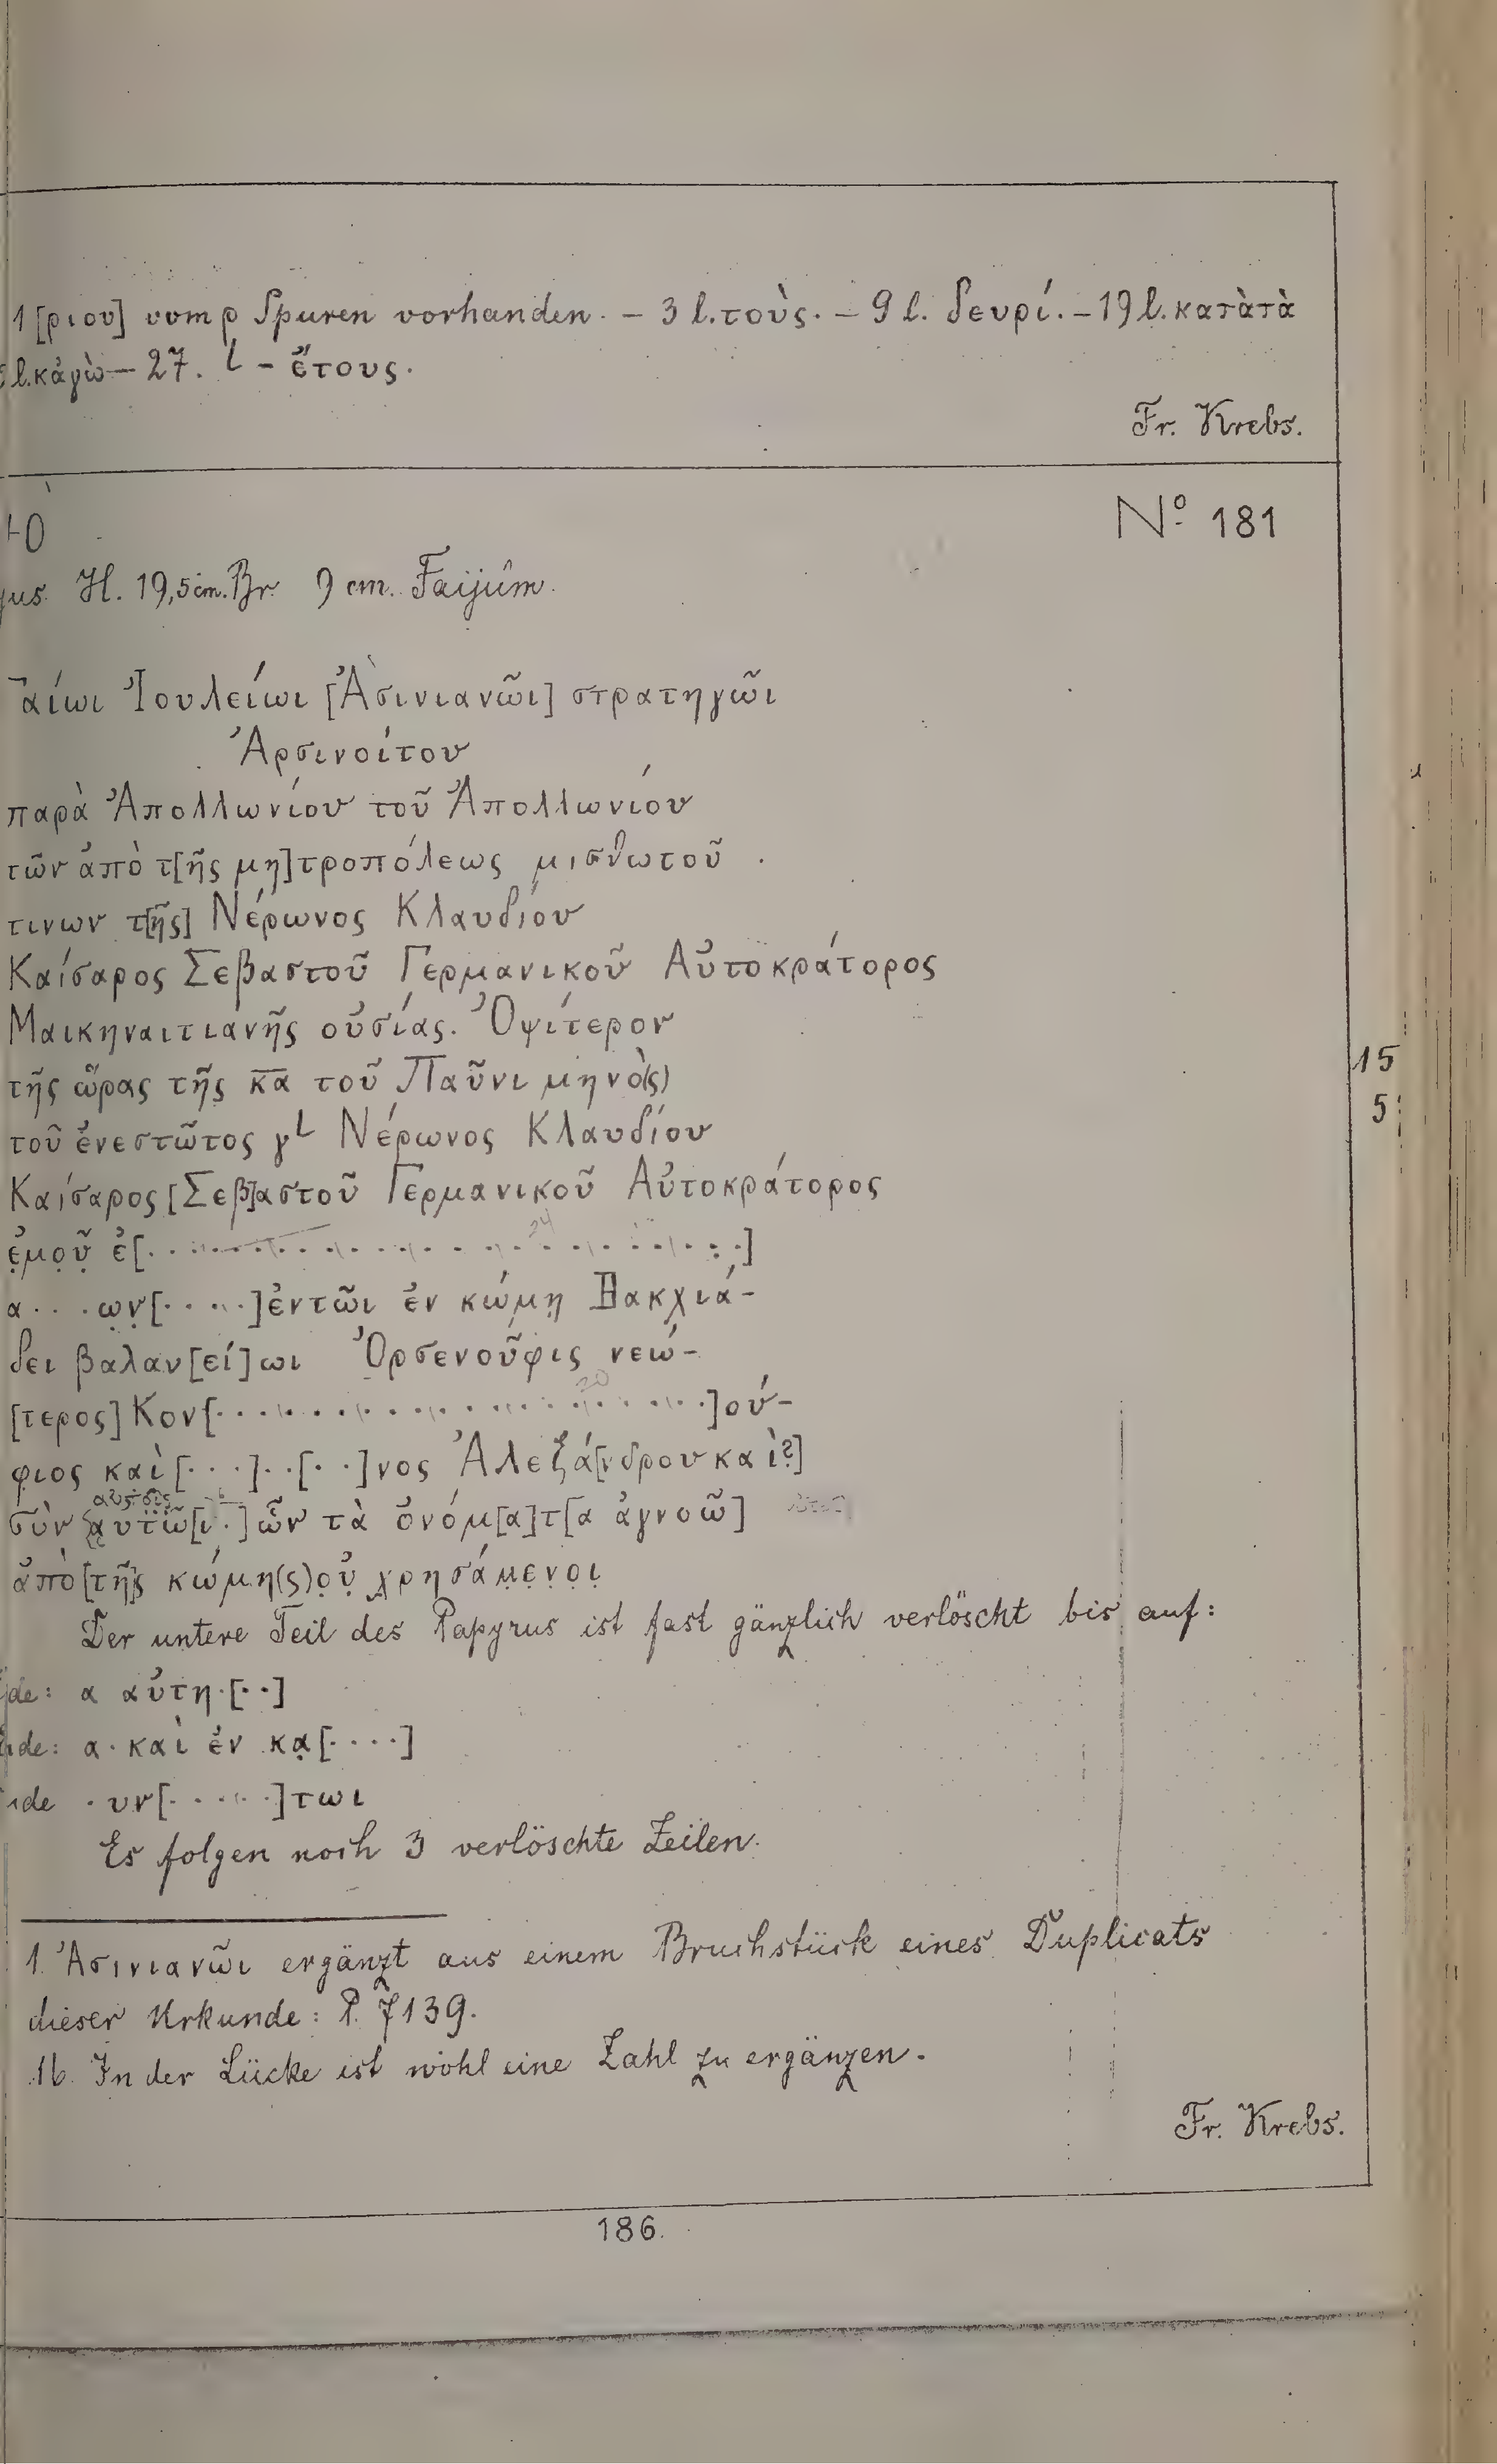 1 [ριου] vom ρ Spuren vorhanden. – 3 l. τοὺς. – 9 l. δευρί. – 19 l. κατὰ τὰ
l. κἀγὼ – 27. L – ἔτους.
Fr. Krebs.
Nº 181
H. 19,5 cm. Br. 9 cm. Faijûm.
Γαίωι Ἰουλείωι [Ἀσινιανῶι] στρατηγῶι
Ἀρσινοίτου
παρὰ Ἀπολλωνίου τοῦ Ἀπολλωνίου
τῶν ἀπὸ τ[ῆς μη]τροπόλεως μισθωτοῦ
τινων τ[ῆς] Νέρωνος Κλαυδίου
Καίσαρος Σεβαστοῦ Γερμανικοῦ Αὐτοκράτορος
Μαικηναιτιανῆς οὐσίας. Ὀψίτερον
τῆς ὥρας τῆς κ̅α̅ τοῦ Παῦνι μηνὸ(ς)
15
τοῦ ἐνεστῶτος γL Νέρωνος Κλαυδίου
5
Καίσαρος [Σεβ]αστοῦ Γερμανικοῦ Αὐτοκράτορος
ἐ̣μο̣ῦ̣ ἐ[. . . . . . . . . . . . . . . . . . . .]
α . . . ω̣ν̣[. . . . .]ἐντῶι ἐν κώμῃ Βακχιά-
δει βαλαν[εί]ωι Ὀρσενοῦφις νεώ-
[τερος] Κον[. . . . . . . . . . . . . . . . . . . .]ού-
φιος καὶ [. . . .] . . [. . .]νος Ἀλεξά[νδρου καὶ?]
σὺν αὐτῶ[ι .] ὧν τὰ ὀνόμ[α]τ[α ἀγνοῶ]
ἀπὸ [τῆ]ς κώμη(ς) ο̣ὐ̣ χ̣ρησά̣μ̣ε̣ν̣ο̣ι̣
Der untere Teil des Papyrus ist fast gänzlich verlöscht bis auf:
α αὐτη . [. .]
α . καὶ ἐν κα̣[. . . .]
. υν[. . . . . .]τωι
Es folgen noch 3 verlöschte Zeilen.
1. Ἀσινιανῶι ergänzt aus einem Bruchstück eines Duplicats
dieser Urkunde: P. 7139.
16. In der Lücke ist wohl eine Zahl zu ergänzen.
Fr. Krebs.
186.